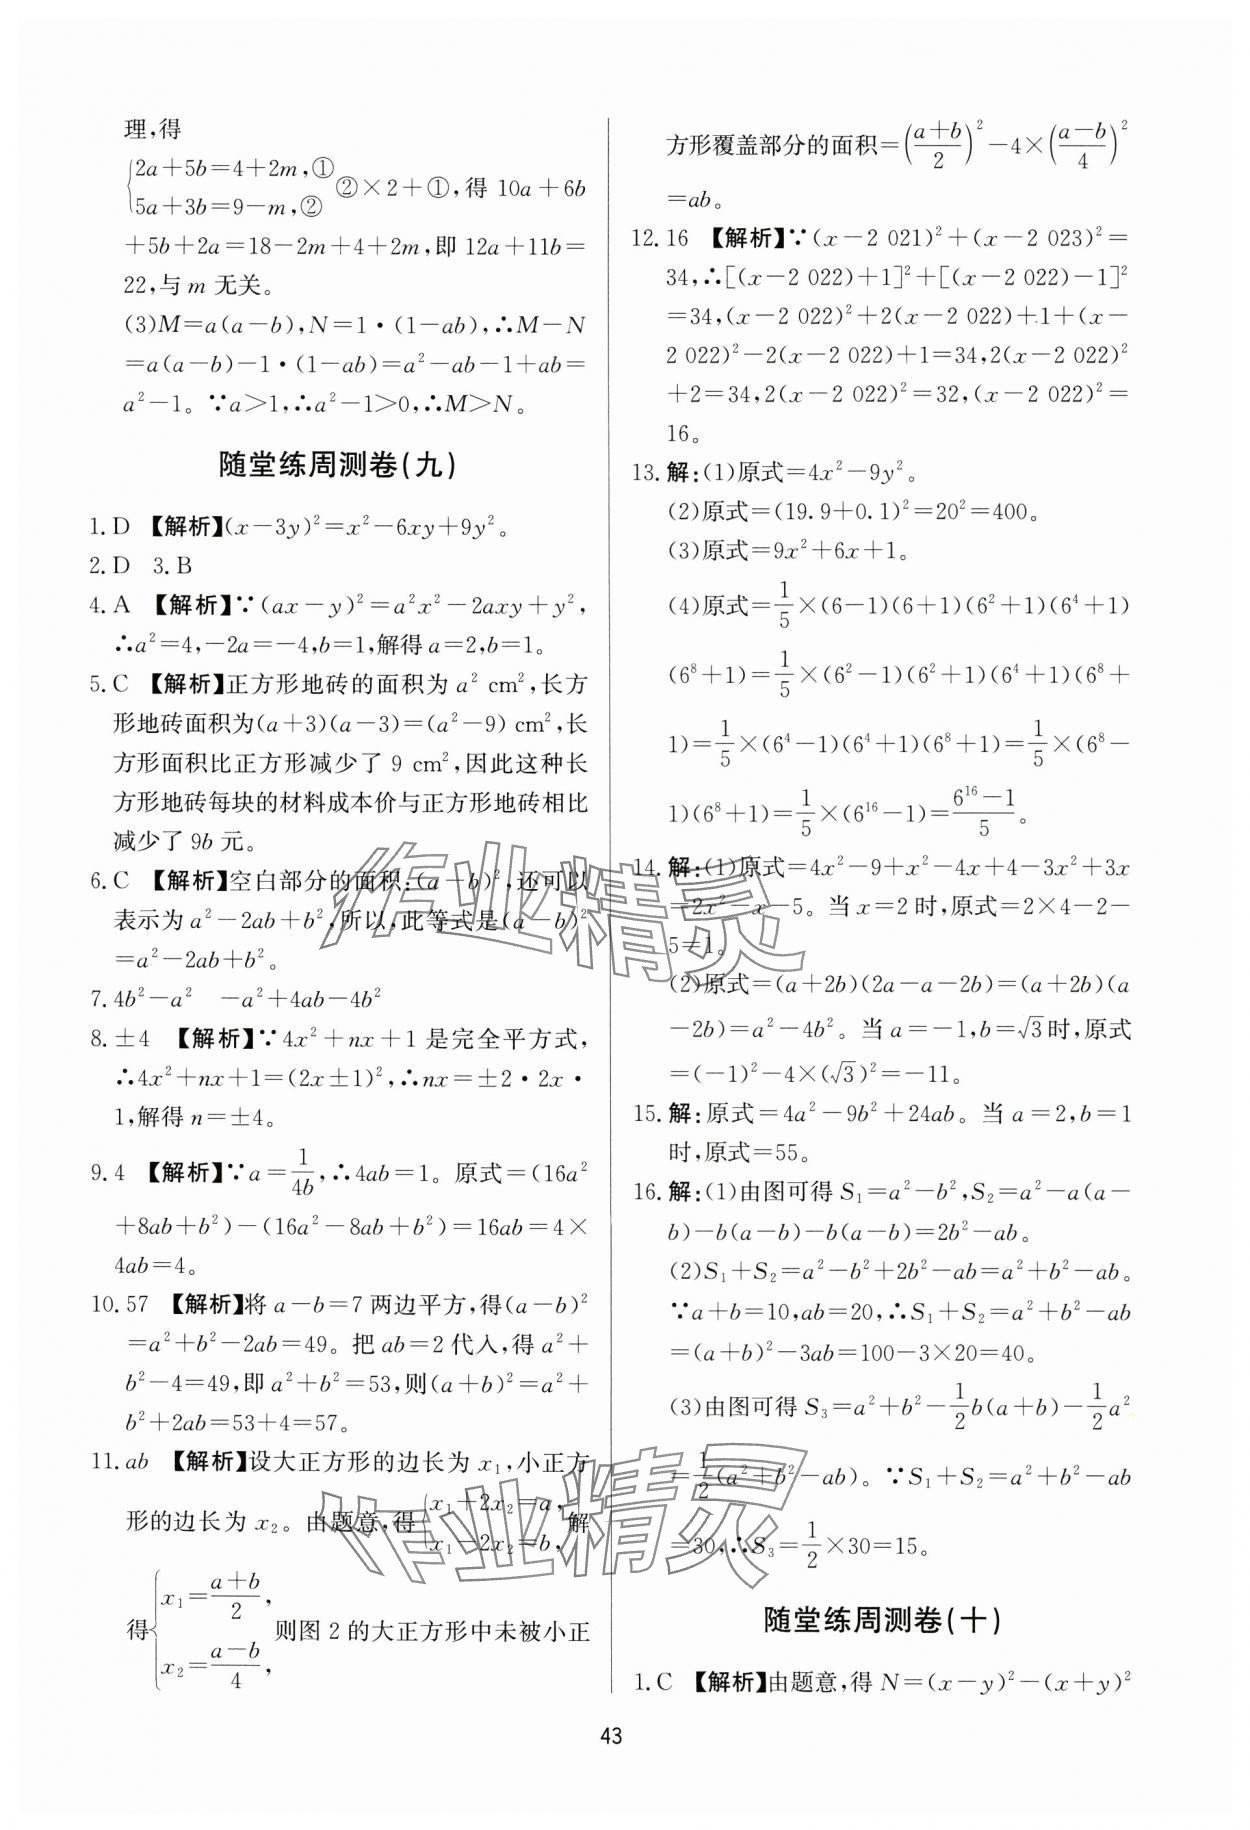 理,得
{2a+5b=4+2m,①
5a+3b=9-m,② ②×2+①,得 10a+6b
+5b+2a=18-2m+4+2m,即 12a+11b=
22,与 m 无关。
(3)M=a(a-b),N=1·(1-ab),∴M-N
=a(a-b)-1·(1-ab)=a²-ab-1+ab=
a²-1。∵a>1,∴a²-1>0,∴M>N。
随堂练周测卷(九)
1. D 【解析】(x-3y)²=x²-6xy+9y²。
2. D 3. B
4. A 【解析】∵(ax-y)²=a²x²-2axy+y²,
∴a²=4,-2a=-4,b=1,解得a=2,b=1。
5. C 【解析】正方形地砖的面积为 a² cm²,长方
形地砖面积为(a+3)(a-3)=(a²-9) cm²,长
方形面积比正方形减少了 9 cm²,因此这种长
方形地砖每块的材料成本价与正方形地砖相比
减少了 9b 元。
6. C 【解析】空白部分的面积:(a-b)²,还可以
表示为 a²-2ab+b²,所以,此等式是(a-b)²
=a²-2ab+b²。
7. 4b²-a² -a²+4ab-4b²
8. ±4 【解析】∵4x²+nx+1 是完全平方式,
∴4x²+nx+1=(2x±1)²,∴nx=±2·2x·
1,解得 n=±4。
9. 4 【解析】∵a=1/4b,∴4ab=1。原式=(16a²
+8ab+b²)-(16a²-8ab+b²)=16ab=4×
4ab=4。
10. 57 【解析】将 a-b=7 两边平方,得(a-b)²
=a²+b²-2ab=49。把 ab=2 代入,得 a²+
b²-4=49,即 a²+b²=53,则(a+b)²=a²+
b²+2ab=53+4=57。
11. ab 【解析】设大正方形的边长为 x₁,小正方
形的边长为 x₂。由题意,得{x₁+2x₂=a,
x₁-2x₂=b, 解
得{x₁=(a+b)/2,
x₂=(a-b)/4, 则图 2 的大正方形中未被小正
方形覆盖部分的面积=((a+b)/2)²-4×((a-b)/4)²
=ab。
12. 16 【解析】∵(x-2 021)²+(x-2 023)²=
34,∴[(x-2 022)+1]²+[(x-2 022)-1]²
=34,(x-2 022)²+2(x-2 022)+1+(x-
2 022)²-2(x-2 022)+1=34,2(x-2 022)²
+2=34,2(x-2 022)²=32,(x-2 022)²=
16。
13. 解:(1)原式=4x²-9y²。
(2)原式=(19.9+0.1)²=20²=400。
(3)原式=9x²+6x+1。
(4)原式=1/5×(6-1)(6+1)(6²+1)(6⁴+1)
(6⁸+1)=1/5×(6²-1)(6²+1)(6⁴+1)(6⁸+
1)=1/5×(6⁴-1)(6⁴+1)(6⁸+1)=1/5×(6⁸-
1)(6⁸+1)=1/5×(6¹⁶-1)=(6¹⁶-1)/5。
14. 解:(1)原式=4x²-9+x²-4x+4-3x²+3x
=2x²-x-5。当 x=2 时,原式=2×4-2-
5=1。
(2)原式=(a+2b)(2a-a-2b)=(a+2b)(a
-2b)=a²-4b²。当 a=-1,b=√3时,原式
=(-1)²-4×(√3)²=-11。
15. 解:原式=4a²-9b²+24ab。当 a=2,b=1
时,原式=55。
16. 解:(1)由图可得 S₁=a²-b²,S₂=a²-a(a-
b)-b(a-b)-b(a-b)=2b²-ab。
(2)S₁+S₂=a²-b²+2b²-ab=a²+b²-ab。
∵a+b=10,ab=20,∴S₁+S₂=a²+b²-ab
=(a+b)²-3ab=100-3×20=40。
(3)由图可得 S₃=a²+b²-1/2b(a+b)-1/2a²
=1/2(a²+b²-ab)。∵S₁+S₂=a²+b²-ab
=30,∴S₃=1/2×30=15。
随堂练周测卷(十)
1. C 【解析】由题意,得 N=(x-y)²-(x+y)²
43
作业精灵
作业精灵